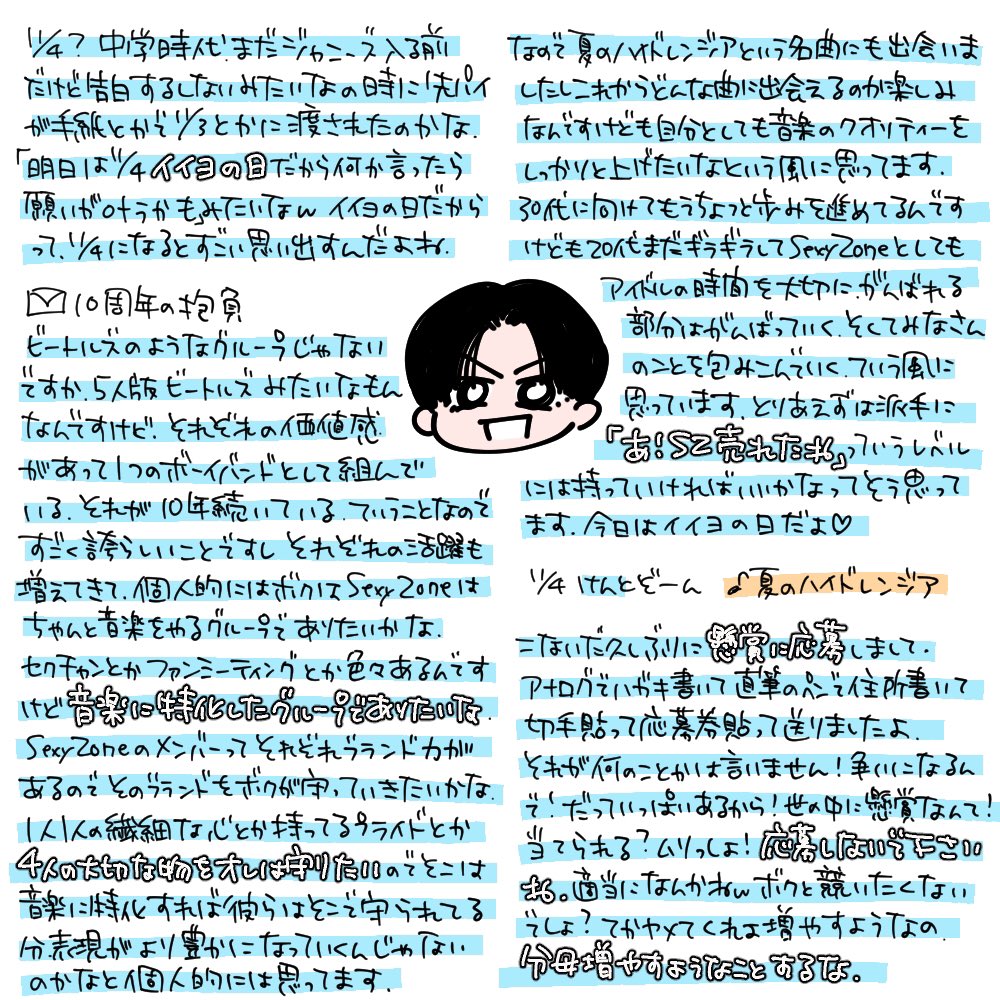 11/4？中学時代！まだジャニーズ入る前
だけど告白するしないみたいなの時に1先パイ
が手紙とかで11/3とかに渡されたのかな.
「明日は11/4イイヨの日だから何か言ったら
願いが叶うかも」みたいなw イイヨの日だから
って. 11/4になるとすごい思い出すんだよね.
10周年の抱負
ビートルズのようなグループじゃない
ですか. 5人版ビートルズみたいなもん
なんですけど. それぞれの価値感
があって1つのボーイバンドとして組んで
いる. それが10年続いている. ていうことなので
すごく誇らしいことですし それぞれの活躍も
増えてきて. 個人的にはボクはSexyZoneは
ちゃんと音楽をやるグループでありたいかな.
セクチャンとかファンミーティングとか色々あるんです
けど音楽に特化したグループでありたいな.
SexyZoneのメンバーってそれぞれブランド力が
あるのでそのブランドをボクが守っていきたいかな.
1人1人の繊細な心とか持ってるプライドとか
4人の大切な物をオレは守りたいのでそこは
音楽に特化すれば彼らはそこで守られてる
分表現がより豊かになっていくんじゃない
のかなと個人的には思ってます.
なので夏のハイドレンジアという名曲にも出会いま
したしこれからどんな曲に出会えるのか楽しみ
なんですけども自分としても音楽のクオリティーを
しっかりと上げたいなという風に思ってます.
30代に向けてもうちょっと歩みを進めてるんです
けども20代まだギラギラしてSexyZoneとしても
アイドルの時間を大切に. がんばれる
部分はがんばっていく. そしてみなさん
のことを包みこんでいく. ていう風に
思っています. とりあえずは派手に
「あ！SZ売れたね」っていうレベル
には持っていければいいかなってそう思って
ます. 今日はイイヨの日だよ♡
11/4 けんとぞーん ♪夏のハイドレンジア
こないだ久しぶりに懸賞に応募しまして.
アナログでハガキ書いて直筆のペンで住所書いて
切手貼って応募券貼って送りましたよ.
それが何のことかは言いません！争いになるん
で！だっていっぱいあるから！世の中に懸賞なんて！
当てられる？ムリっしょ！応募しないで下さい
ね。適当になんかねwボクと競いたくない
でしょ？てかヤメてくれよ増やすようなの.
分母増やすようなことするな。